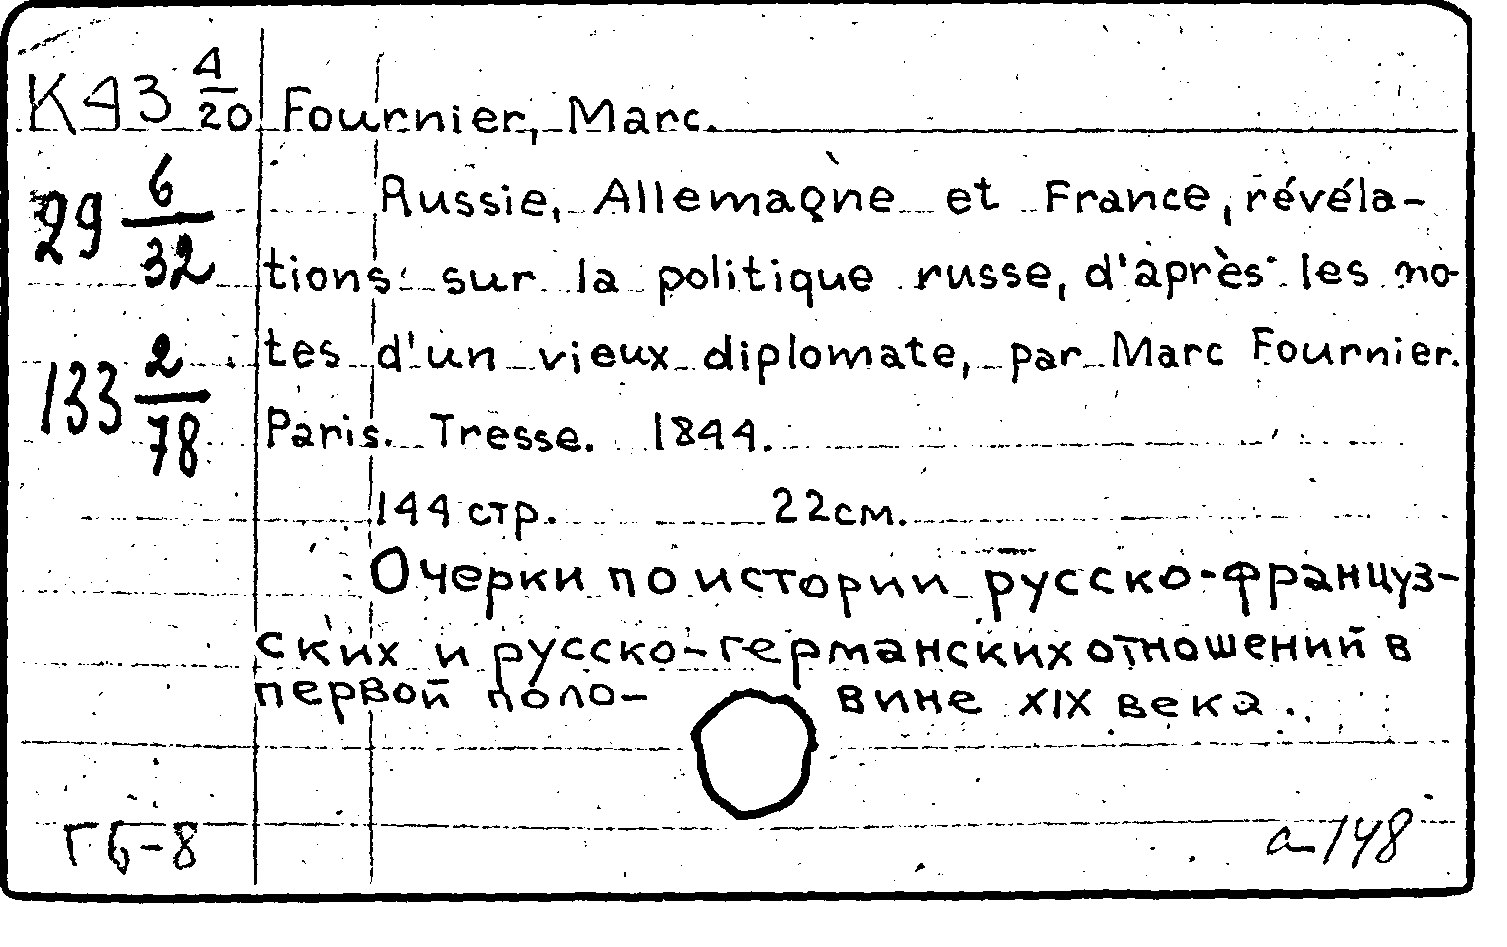 К 43 4/20 Fournier, Marc.
29 6/32 Russie, Allemagne et France, révéla-
tions sur la politique russe, d'après les no-
133 2/78 tes d'un vieux diplomate, par Marc Fournier.
Paris. Tresse. 1844.
144 стр. 22 см.
Очерки по истории русско-француз-
ских и русско-германских отношений в
первой поло- вине XIX века.
Г6-8 а-148